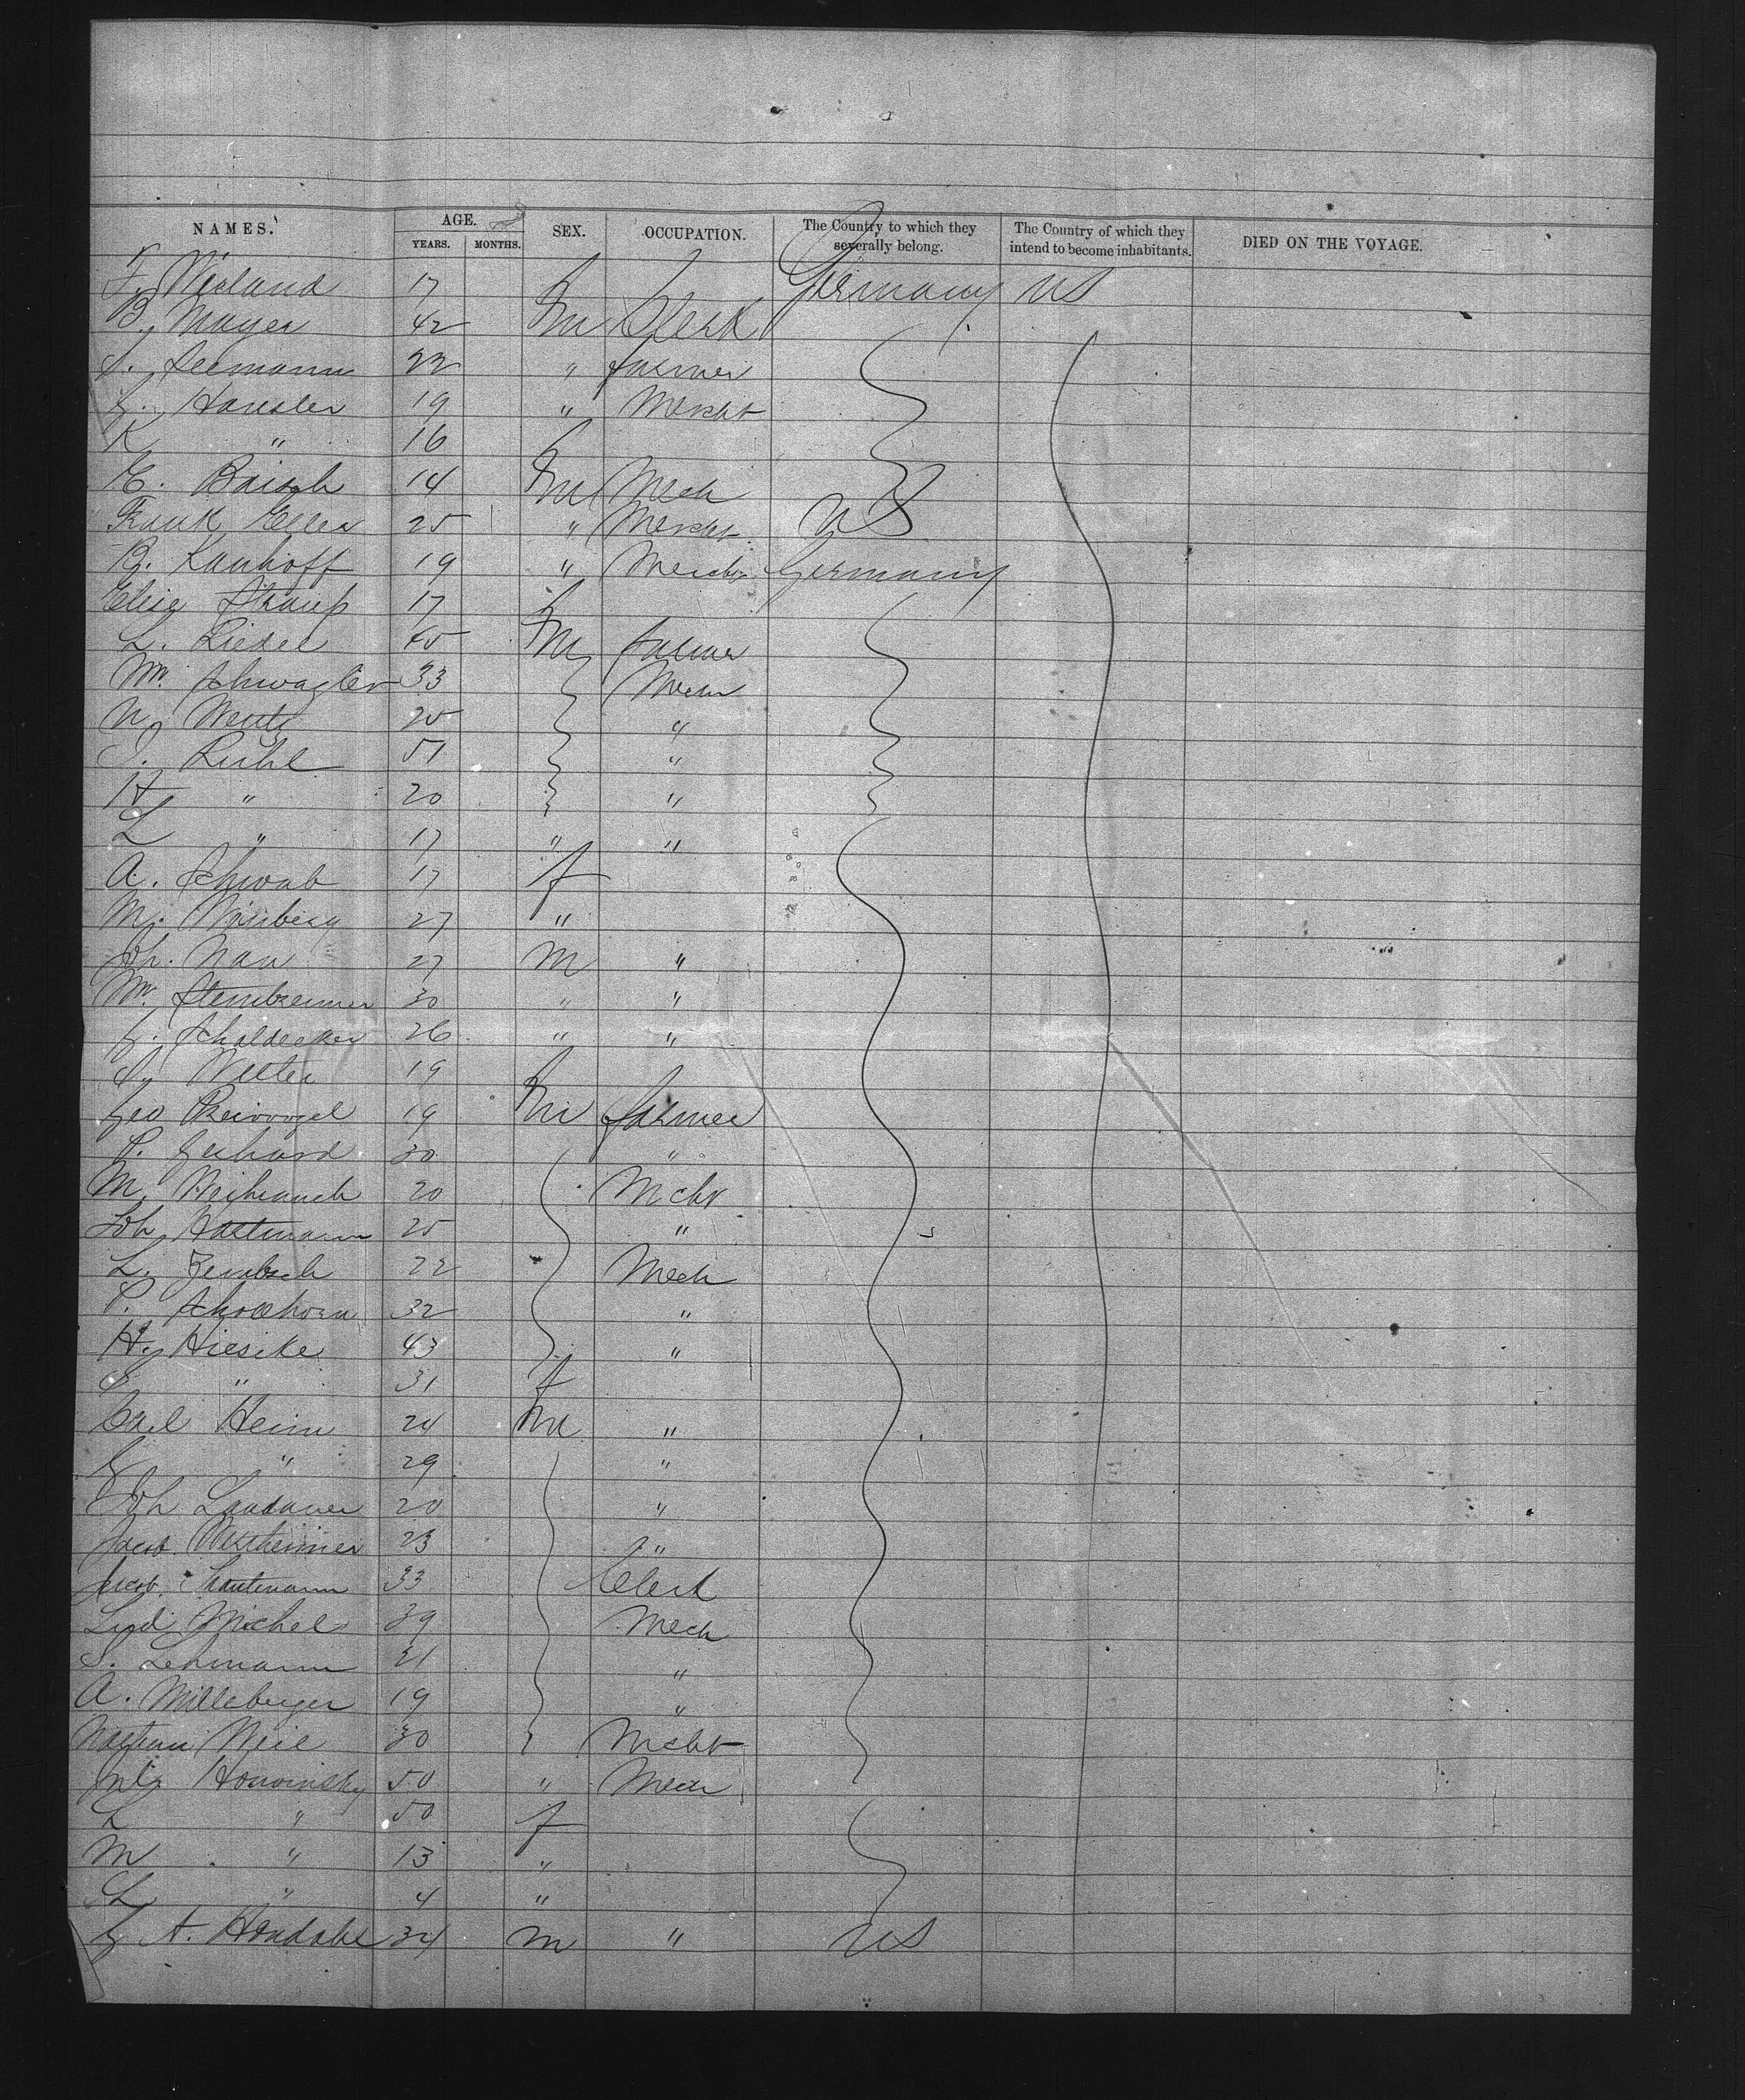 NAMES. AGE. YEARS. MONTHS. SEX. OCCUPATION. The Country to which they severally belong. The Country of which they intend to become inhabitants. DIED ON THE VOYAGE.
F. Wieland 17 Germany US
B. Mayer 42 m Clerk
S. Seemann 22 " farmer
G. Hausler 19 " Mercht
K " 16
E. Baisch 14 m Mech
Frank Eller 25 " Mercht US
B. Kauhoff 19 " Mercht Germany
Elise 17
L. Riedel m farmer
Wm. Schwagler 33 Mech
N. Wentz 25 "
J. Ruhl 51 "
H " 20 "
L " 17 " "
A. Schwab 17 f
M. 27 "
Joh. Nau 27 m "
Wm. Steinbrenner 30 " "
G. Schaldecker 26 " "
S. 19
Geo 19 m farmer
P. Gerhard 30 "
M. Weihrauch 20 Mcht
Joh. Hattmann 25 "
L. 22 Mech
P. Schollhorn 32 "
H. Hieseke 43 "
" 31 f
Carl Heim 24 m "
G " 29 "
Joh Landauer 20 "
Jacob Westheimer 23 "
Jacob 33 Clerk
Lud. Michel 39 Mech
S. Lehmann 21 "
A. Milleberger 19 "
Nathan Weil 30 Mcht
50 " Mech
L " 50 f
M " 13 "
" 4 "
G A. 34 m " US